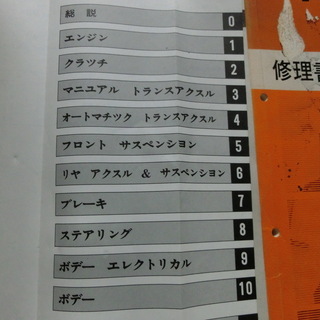 総説 0
エンジン 1
クラツチ 2
マニユアル トランスアクスル 3
オートマチツク トランスアクスル 4
フロント サスペンション 5
リヤ アクスル & サスペンション 6
ブレーキ 7
ステアリング 8
ボデー エレクトリカル 9
ボデー 10
修理書